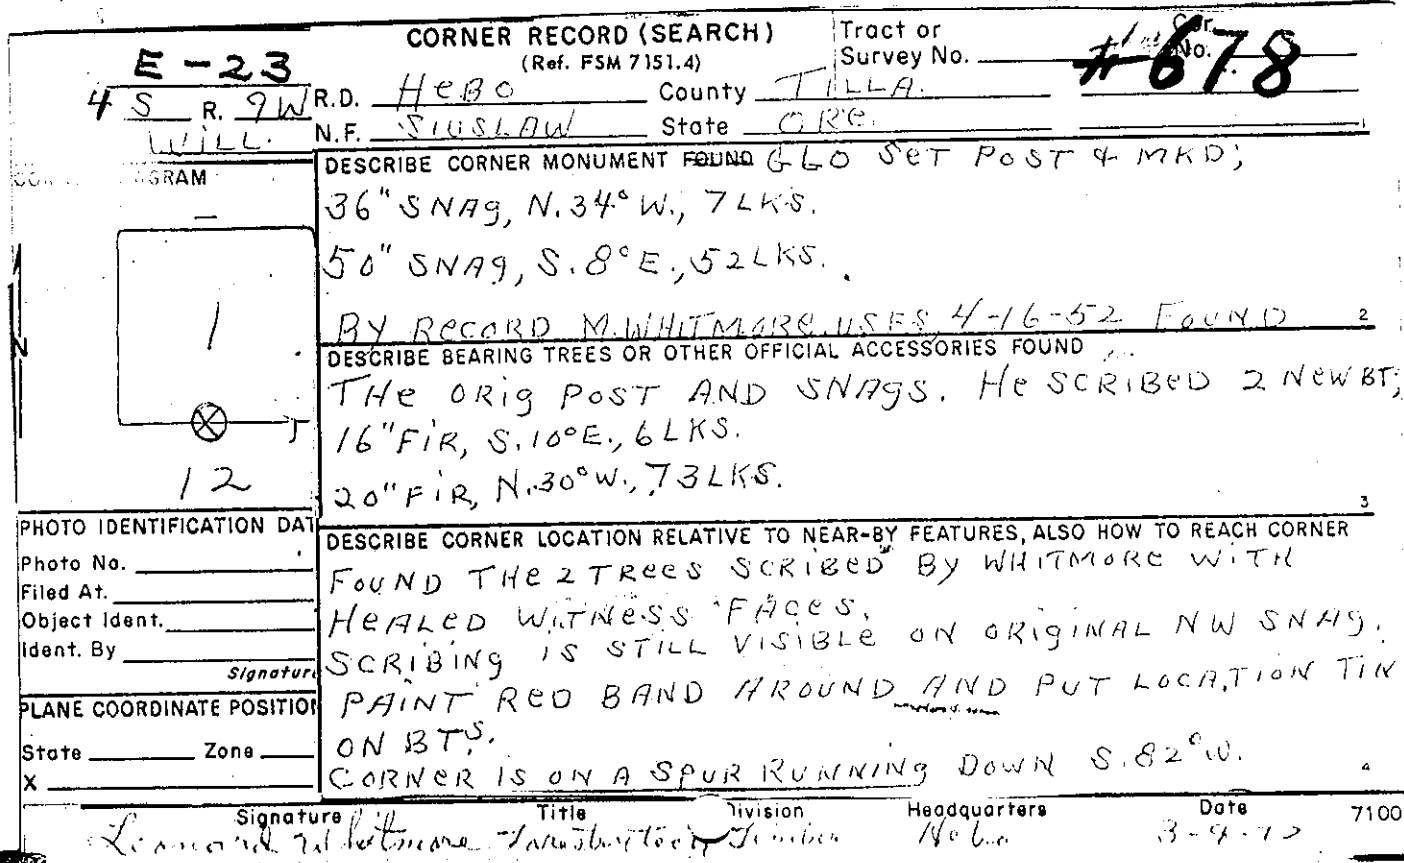 CORNER RECORD (SEARCH)
(Ref. FSM 7151.4)
Tract or
Survey No.
Cor.
No.
#678
E-23
4 S R. 9W
WILL.
R.D. HEBO County TILLA.
N.F. SIUSLAW State ORE. 1
DESCRIBE CORNER MONUMENT FOUND GLO SET POST & MKD;
36" SNAG, N.34° W., 7 LKS.
50" SNAG, S.8° E., 52 LKS.
BY RECORD M.WHITMORE USFS 4-16-52 FOUND 2
GRAM
1
12
N
DESCRIBE BEARING TREES OR OTHER OFFICIAL ACCESSORIES FOUND
THE ORIG POST AND SNAGS. HE SCRIBED 2 NEW BT;
16" FIR, S.10° E., 6 LKS.
20" FIR, N.30° W., 73 LKS.
3
PHOTO IDENTIFICATION DAT
Photo No.
Filed At.
Object Ident.
Ident. By
Signature
PLANE COORDINATE POSITION
State Zone
X
DESCRIBE CORNER LOCATION RELATIVE TO NEAR-BY FEATURES, ALSO HOW TO REACH CORNER
FOUND THE 2 TREES SCRIBED BY WHITMORE WITH
HEALED WITNESS FACES.
SCRIBING IS STILL VISIBLE ON ORIGINAL NW SNAG.
PAINT RED BAND AROUND AND PUT LOCATION TIN
ON BTS.
CORNER IS ON A SPUR RUNNING DOWN S.82° W. 4
Signature Title Division Headquarters Date 7100
Leonard Whitmore Timber Hebo